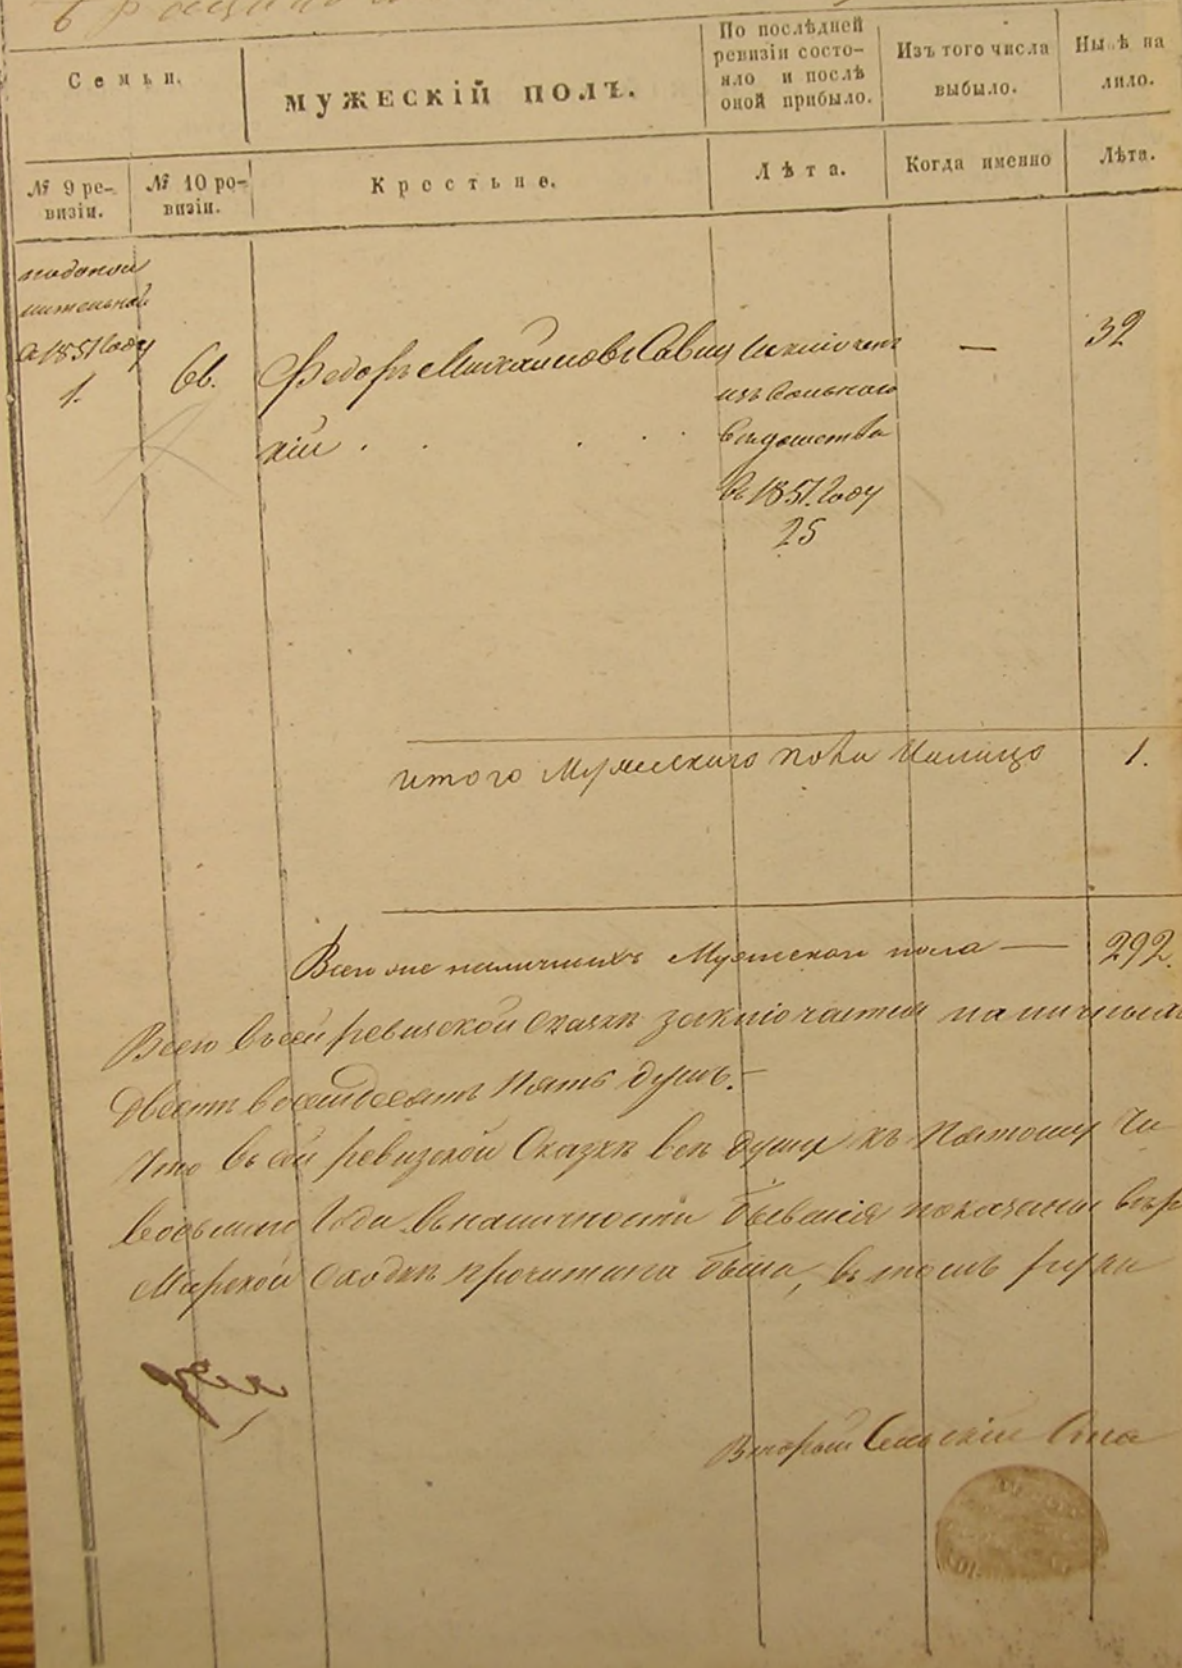 Семьи.
МУЖЕСКІЙ ПОЛЪ.
По послѣдней
ревизіи состо-
яло и послѣ
оной прибыло.
Изъ того числа
выбыло.
Нынѣ на
лицо.
№ 9 ре-
визіи.
№ 10 ре-
визіи.
Крестьяне.
Лѣта.
Когда именно
Лѣта.
подопол
нительной
1851 году
1.
66.
Федоръ Михайловъ Савиц
кій . . . .
Исключенъ
изъ вольнаго
вѣдомства
въ 1851. году
25
—
32
итого Мужескаго пола Налицо 1.
Всего же наличныхъ Мужескаго пола — 292.
Всего въ сей ревизской сказкѣ заключается наличныхъ
Двѣсти восемдесятъ пять душъ.—
Что въ сей ревизской Сказкѣ всѣ души къ Пятому Чи
восьмаго Года въ наличности бывшія показаны
Мирской сходкѣ прочитана была, въ томъ руки
Второй Сельскій Ста